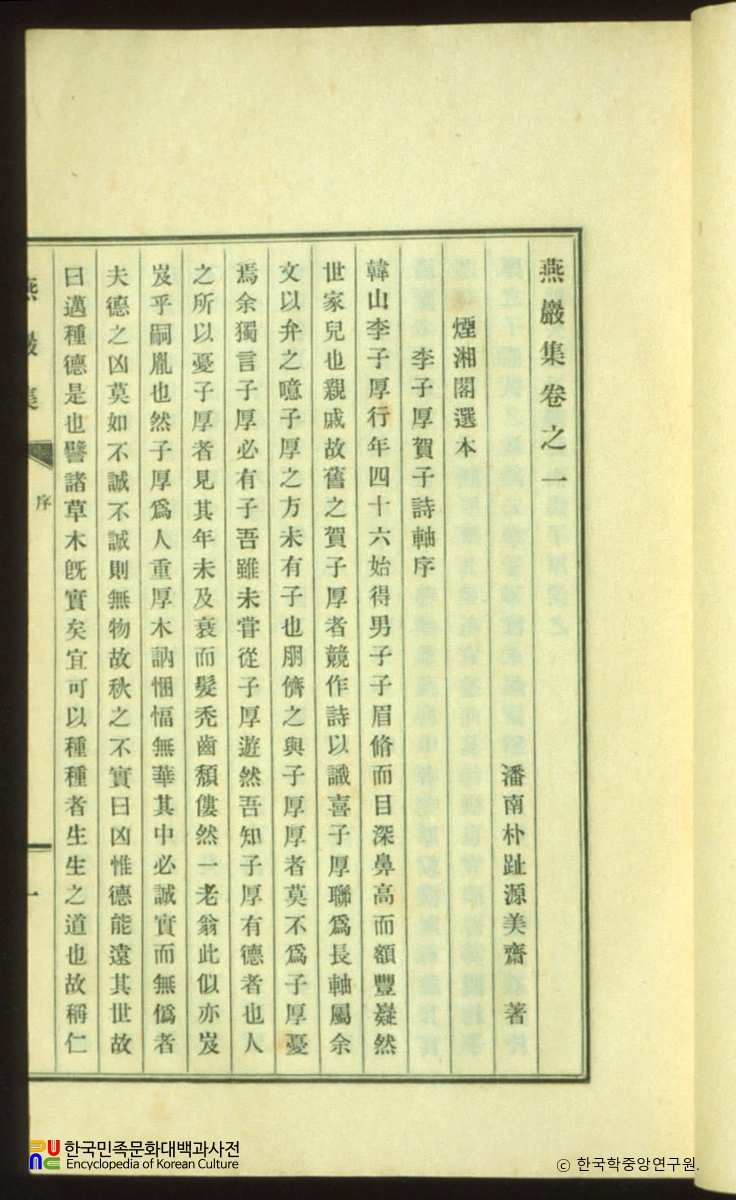 燕巖集卷之一
潘南朴趾源美齋 著
煙湘閣選本
李子厚賀子詩軸序
韓山李子厚行年四十六始得男子子眉脩而目深鼻高而額豐嶷然
世家兒也親戚故舊之賀子厚者競作詩以識喜子厚聯爲長軸屬余
文以弁之噫子厚之方未有子也朋儕之與子厚厚者莫不爲子厚憂
焉余獨言子厚必有子吾雖未嘗從子厚遊然吾知子厚有德者也人
之所以憂子厚者見其年未及衰而髮禿齒頹僂然一老翁此似亦岌
岌乎嗣胤也然子厚爲人重厚木訥悃愊無華其中必誠實而無僞者
夫德之凶莫如不誠不誠則無物故秋之不實曰凶惟德能遠其世故
曰邁種德是也譬諸草木旣實矣宜可以種種者生生之道也故稱仁
燕巖集
序
一
한국민족문화대백과사전
Encyclopedia of Korean Culture
© 한국학중앙연구원.